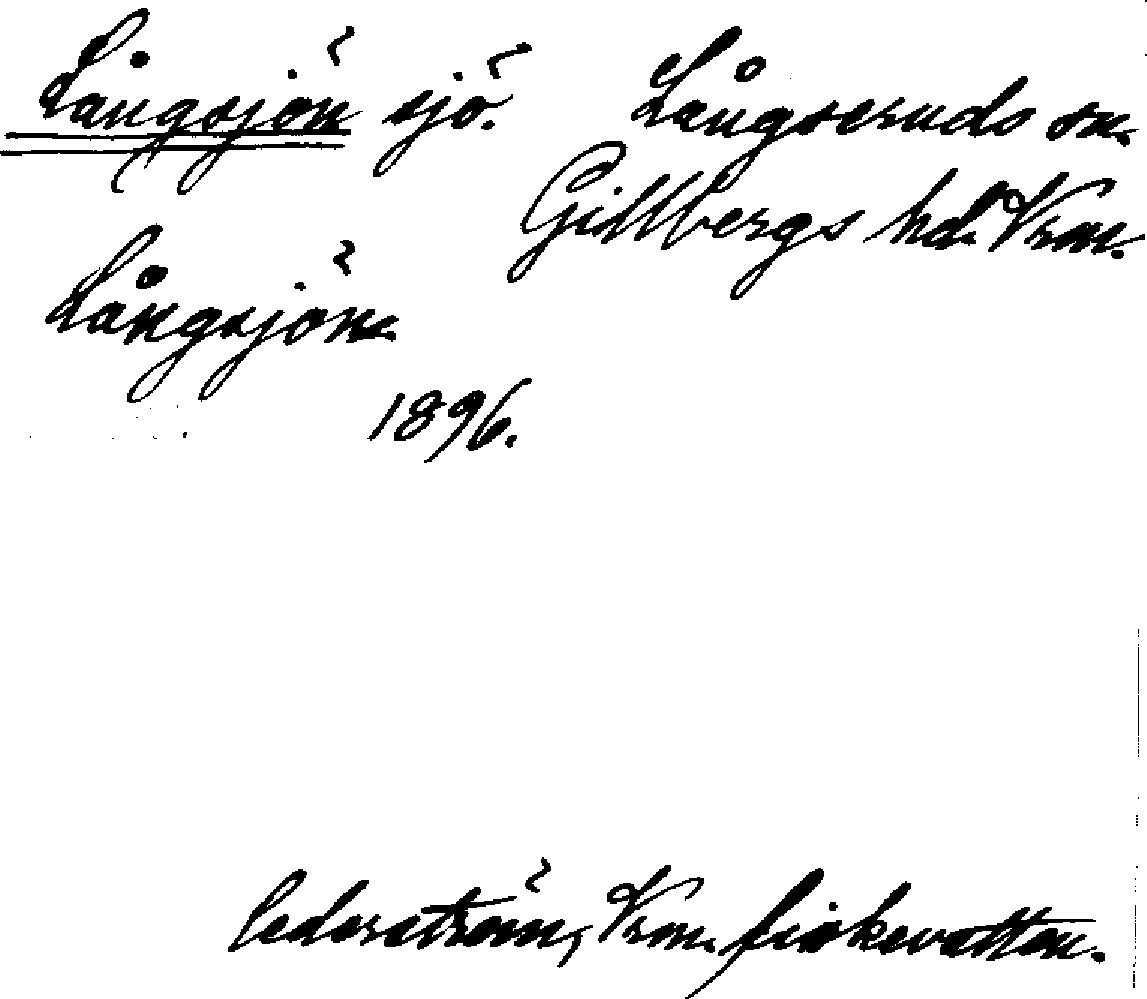 Långsjön sjö. Långseruds sn.
Gillbergs hd. Vrm.
Långsjön.
1896.
Cederström, Vrm. fiskevatten.